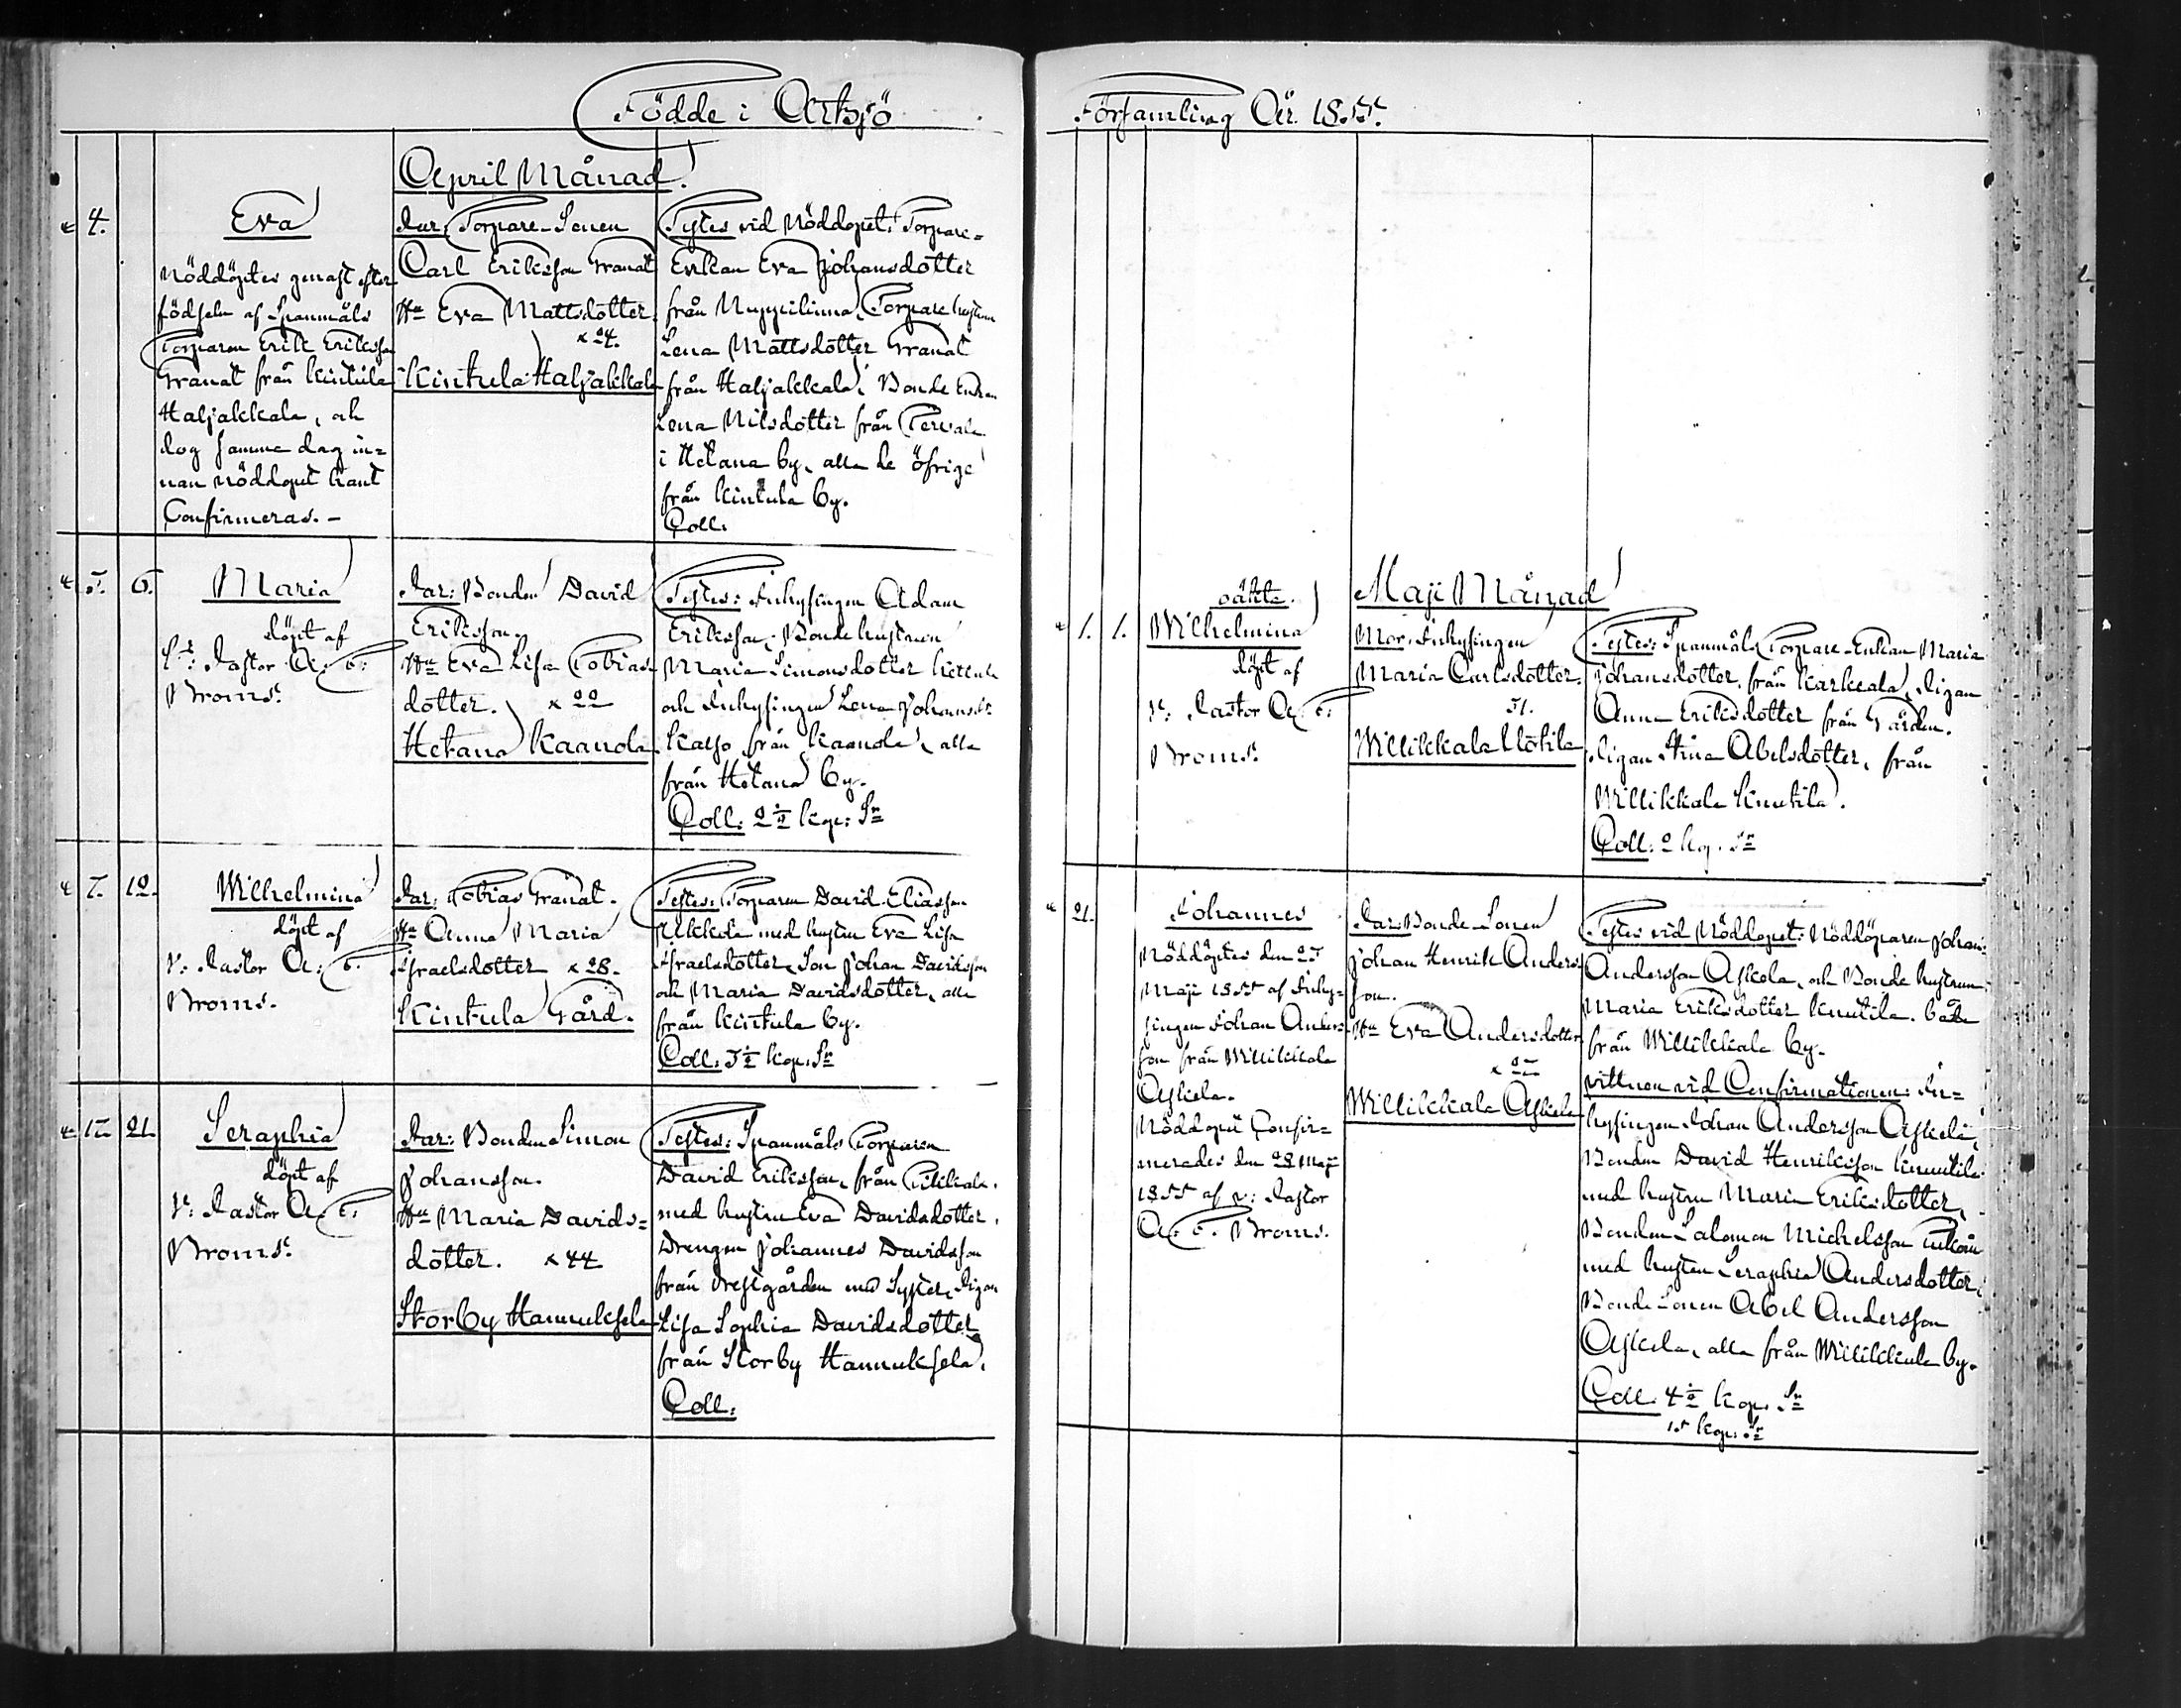 Födde i Artsjö
April Månad.
4.
Eva
Nöddöptes genast efter
födseln af Spanmåls
Torparen Erik Eriksson
Granat från Kintula
Haljakkala, och
dog samma dag in=
nan nöddopet hant
Confirmeras. -
Par: Torpare-Sonen
Carl Eriksson Granat
Hu Eva Mattsdotter.
x 24.
Kintula Haljakkala
Testes vid Nöddopet: Torpare=
Enkan Eva Johansdotter
från Nuppilinna, Torpare hustrun
Lena Mattsdotter Granat
från Haljakkala, Bonde Enkan
Lena Nilsdotter från Perwala
i Hetana by, alla de öfrige
från Kintula by.
Coll:
5. 6.
Maria
döpt af
v: Pastor A: E:
Broms.
Par: Bonden David
Eriksson.
Hu Eva Lisa Tobias-
dotter. x 22
Hetana Kaanola
Testes: Inhysingen Adam
Eriksson, Bonde hustrun
Maria Simonsdotter
och Inhysingen Lena Johansdr
från Kaanola, alla
från Hetana by.
Coll: 2 1/2 kop: Sr
7. 12.
Wilhelmina
döpt af
v: Pastor A: E.
Broms.
Par: Tobias Granat.
Hu Anna Maria
Israelsdotter x 28.
Kintula Gård.
Testes: Torparen David Eliasson
Ukkola med hustru Eva Lisa
Israelsdotter, Son Johan Davidsson
och Maria Davidsdotter, alla
från Kintula by.
Coll: 5 1/2 kop. Sr
21.
Seraphia
döpt af
v: Pastor A. E:
Broms.
Par: Bonden Simon
Johansson.
Hu Maria Davids=
dotter. x 44
Storby Hannuksela
Testes: Spanmåls Torparen
David Eriksson, från
med hustru Eva Davidsdotter,
Drengen Johannes Davidsson
från Prestgården med Syster, Pigan
Lisa Sophia Davidsdotter
från Storby Hannuksela.
Coll:
Församling År 1855.
Maji Månad
1. 1.
oäkta.
Wilhelmina
döpt af
v: Pastor A. E:
Broms.
Mor: Inhysingen
Maria Carlsdotter.
31.
Willikkala Uotila
Testes: Spanmåls Torpare-Enkan Maria
Johansdotter, från Karkkala, Pigan
Anna Eriksdotter från Gården.
Pigan Stina Abelsdotter, från
Willikkala Knutila.
Coll: 2 kop. Sr
21.
Johannes
Nöddöptes den 25
Maji 1855 af Inhy=
singen Johan Anders=
son från Willikkala
Askela.
Nöddopet Confir=
merades den 28 Maji
1855 af v: Pastor
A. E. Broms.
Par: Bonde-Sonen
Johan Henrik Anders-
son.
Hu Eva Andersdotter
Willikkala Askela
Testes vid Nöddopet: Nöddöparen Johan
Andersson Askela, och Bonde hustrun
Maria Eriksdotter Knutila. båda
från Willikkala by.
Vittnen vid Confirmationen: In=
hysingen Johan Andersson Askela,
Bonden David Henriksson Knutila
med hustru Maria Eriksdotter,
Bonden Salomon Michelsson
med hustru Seraphia Andersdotter,
Bonde Sonen Abel Andersson
Askela, alla från Willikkala by.
Coll. 4 1/2 kop. Sr
15 kop: Sr